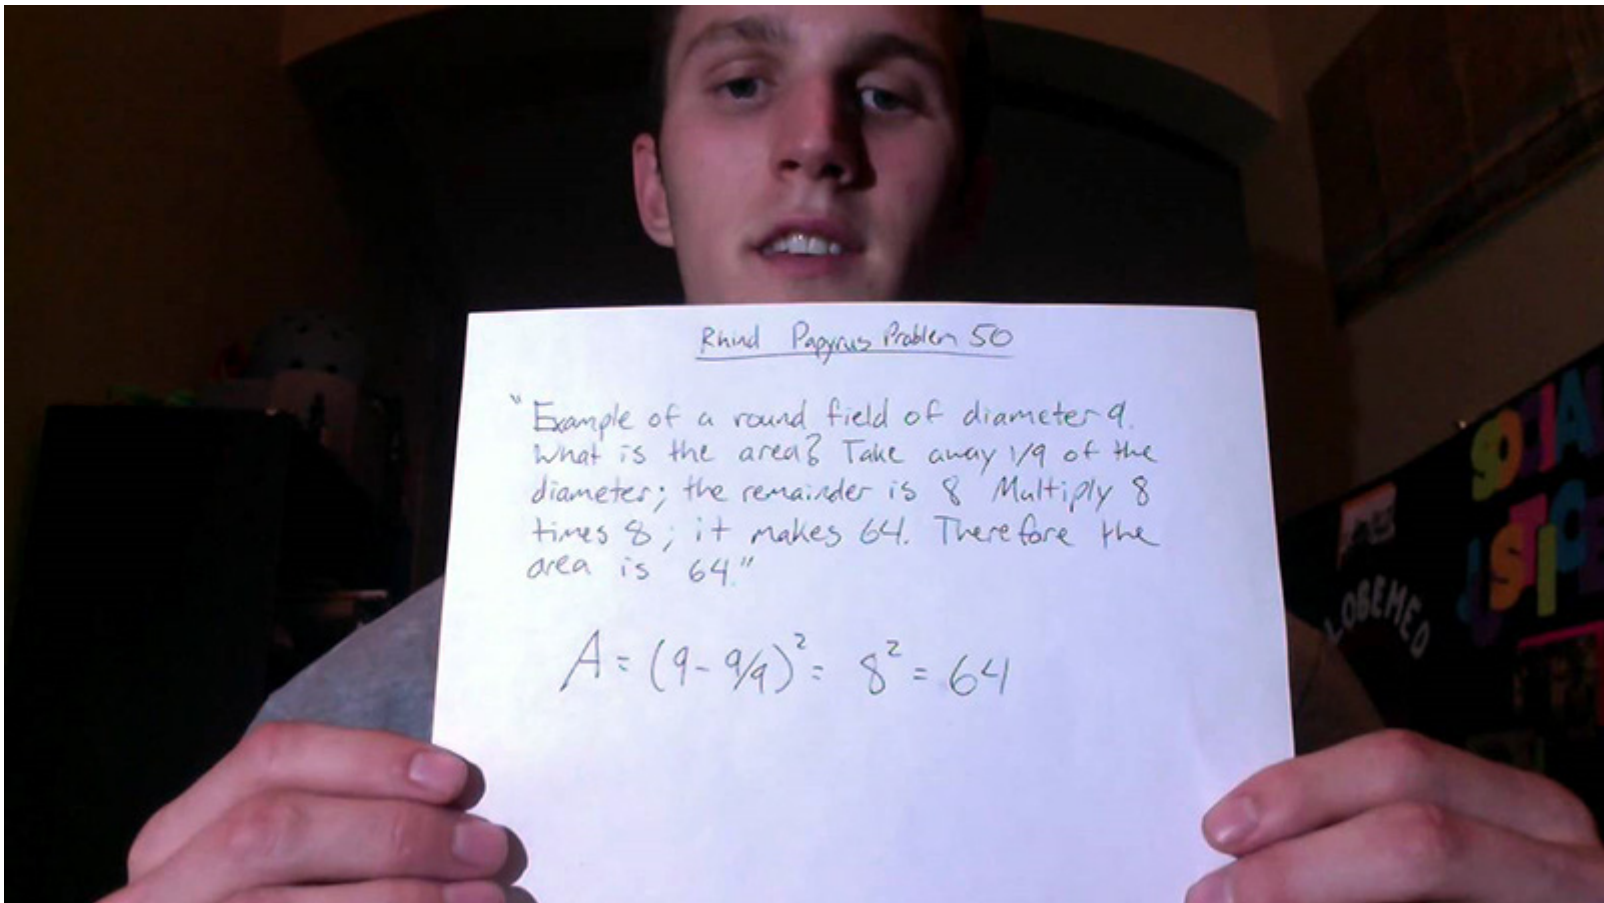 Rhind Papyrus Problem 50
"Example of a round field of diameter 9.
What is the area? Take away 1/9 of the
diameter; the remainder is 8 Multiply 8
times 8; it makes 64. Therefore the
area is 64."
A = (9 - 9/9)² = 8² = 64
SOCIAL
JUSTICE
LOBEMED